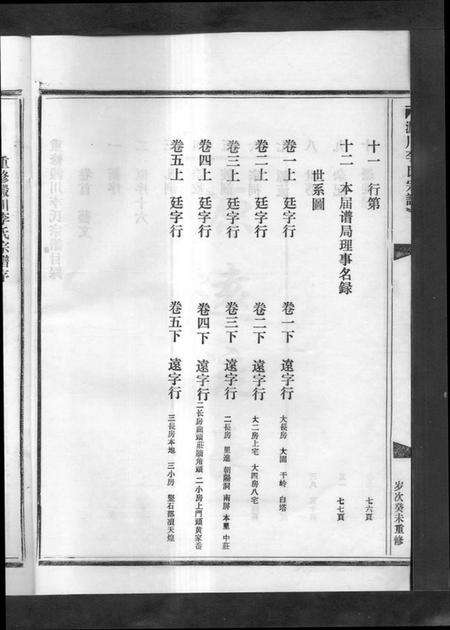 十一　行第　七六頁
十二　本届谱局理事名録　七七頁
世系圖
卷一上　廷字行　卷一下　遠字行　大長房　大園　干岭　白塔
卷二上　廷字行　卷二下　遠字行　大二房上宅　大四房八宅
卷三上　廷字行　卷三下　遠字行　二長房　里進　朝陽洞　南屏　本里　中莊
卷四上　廷字行　卷四下　遠字行　二長房　二小房上門頭黄家岙
卷五上　廷字行　卷五下　遠字行　三長房本地　三小房
岁次癸未重修
李氏宗譜
重修嚴川李氏宗譜序